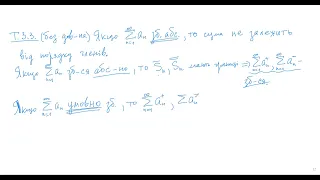 Т.3.3. (без дов-ня) Якщо ∑_{n=1}^{∞} a_n зб. абс., то сума не залежить
від порядку членів.
Якщо ∑_{n=1}^{∞} a_n зб-ся абс-но, то S⁺_n, S⁻_n мають границі ⇒ ∑_{n=1}^{∞} a⁺_n, ∑_{n=1}^{∞} a⁻_n -
зб-ся.
Якщо ∑_{n=1}^{∞} a_n умовно зб, то ∑_{n=1}^{∞} a⁺_n, ∑ a⁻_n